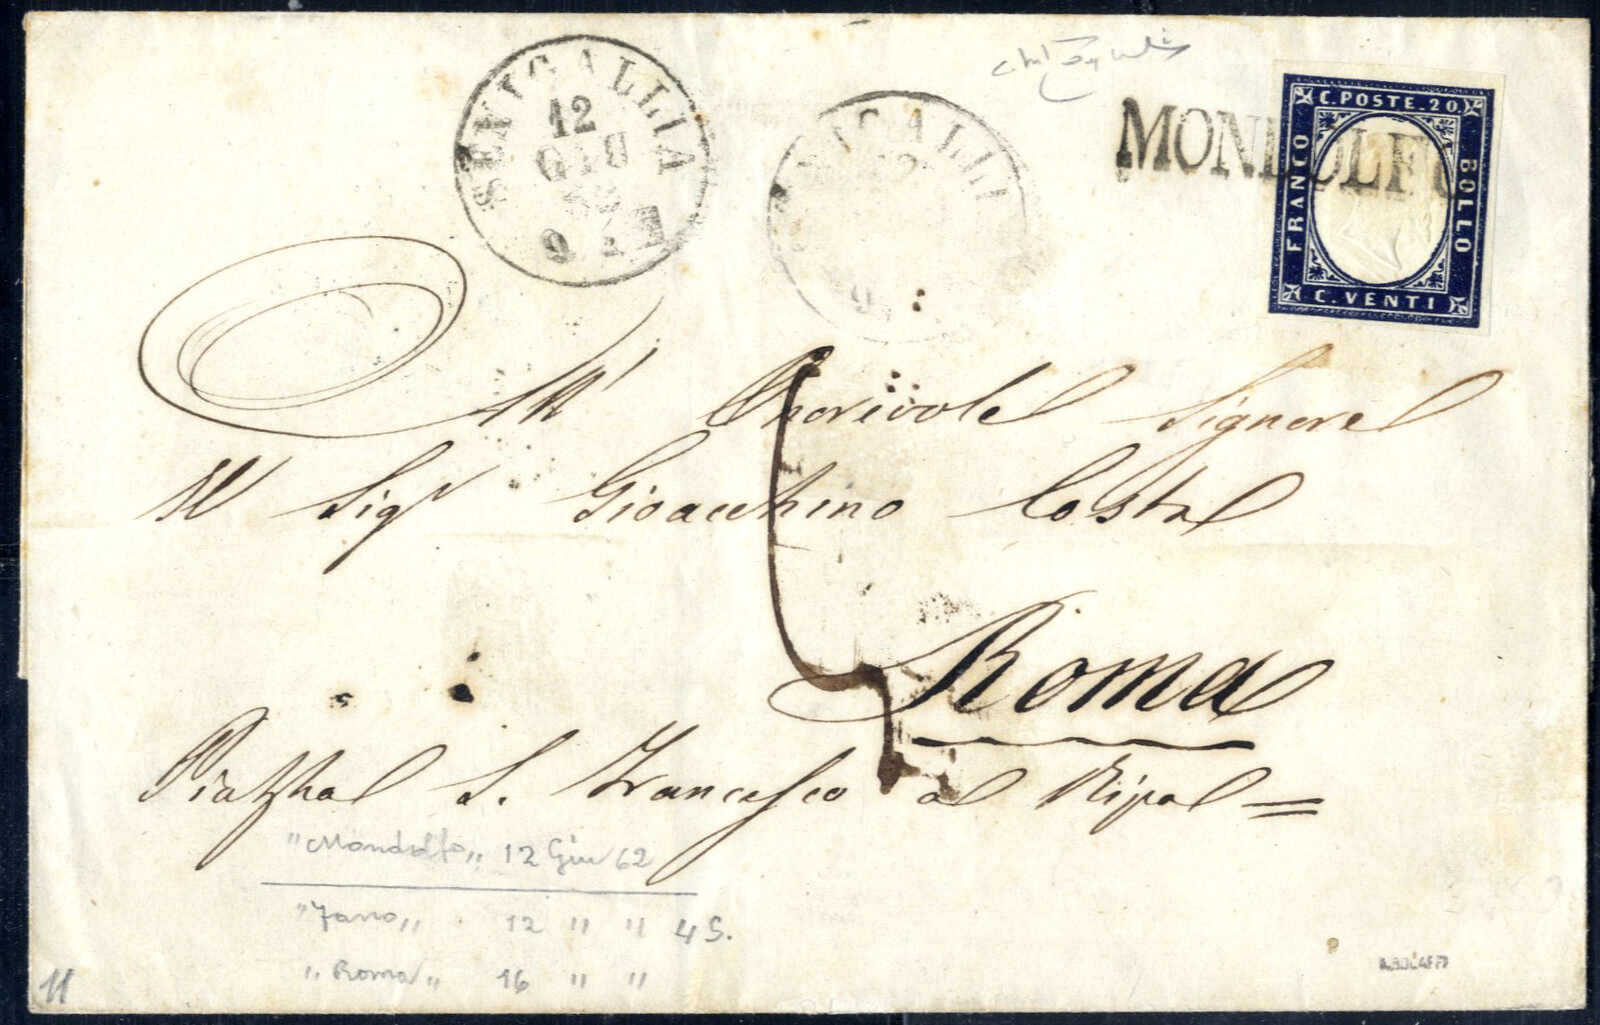 SENIGALLIA
12
GIU
62
9
MONDOLFO
C. POSTE. 20.
FRANCO
BOLLO
C. VENTI
All' Onorevole Signore
Il Sigr Gioacchino Costa
Roma
Piazza S. Francesco a Ripa =
"Mondolfo" 12 Giu 62
"Fano" . 12 " " 4 S.
"Roma" 16 " "
11
A. BOLAFFI